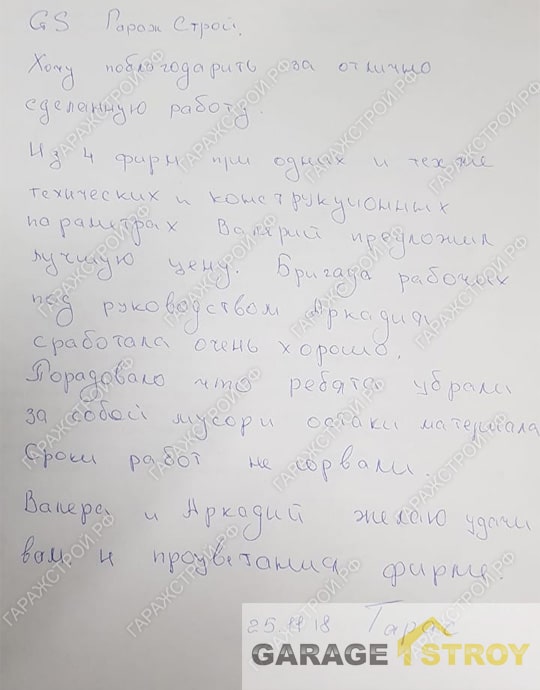 GS Гараж Строй.
Хочу поблогодарить за отлично
сделанную работу.
Из 4 фирм при одних и тех же
технических и конструкционных
параметрах Валерий предложил
лучшую цену. Бригада рабочих
под руководством Аркадия
сработала очень хорошо.
Порадовало что ребята убрали
за собой мусор и остаки материала
Сроки работ не сорвали.
Валера и Аркадий желаю удачи
вам и процветания фирме.
Тарас
GARAGE STROY
ГАРАЖСТРОЙ.РФ